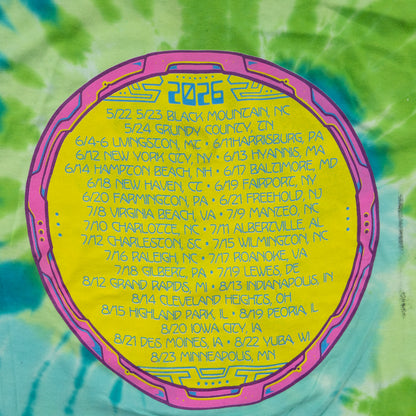 2026
5/22 5/23 BLACK MOUNTAIN, NC
5/24 GRUNDY COUNTY, TN
6/4-6 LIVINGSTON, MT • 6/11 HARRISBURG, PA
6/12 NEW YORK CITY, NY • 6/13 HYANNIS, MA
6/14 HAMPTON BEACH, NH • 6/17 BALTIMORE, MD
6/18 NEW HAVEN, CT • 6/19 FAIRPORT, NY
6/20 FARMINGTON, PA • 6/21 FREEHOLD, NJ
7/8 VIRGINIA BEACH, VA • 7/9 MANTEO, NC
7/10 CHARLOTTE, NC • 7/11 ALBERTVILLE, AL
7/12 CHARLESTON, SC • 7/15 WILMINGTON, NC
7/16 RALEIGH, NC • 7/17 ROANOKE, VA
7/18 GILBERT, PA • 7/19 LEWES, DE
8/12 GRAND RAPIDS, MI • 8/13 INDIANAPOLIS, IN
8/14 CLEVELAND HEIGHTS, OH
8/15 HIGHLAND PARK, IL • 8/19 PEORIA, IL
8/20 IOWA CITY, IA
8/21 DES MOINES, IA • 8/22 YUBA, WI
8/23 MINNEAPOLIS, MN